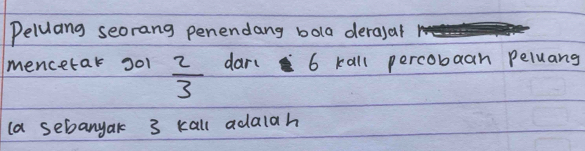 Peluang seorang penendang bola derajat
mencetak gol 2/3 dari 6 kali percobaan peluang
ia sebanyak 3 kali adalah